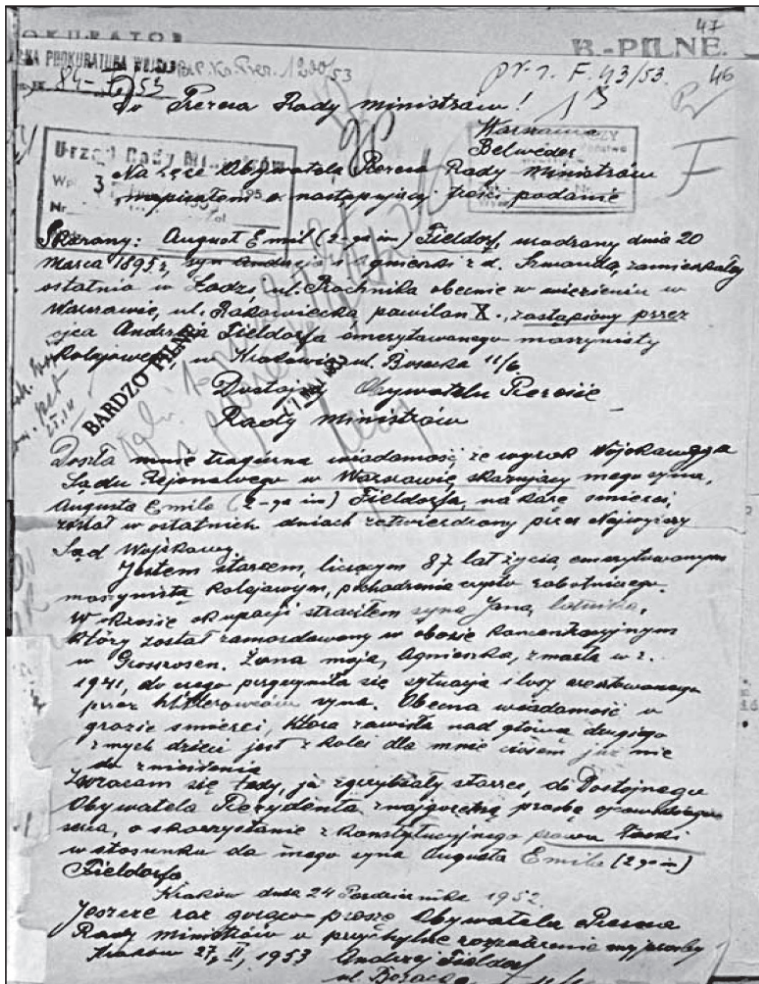 47
PROKURATOR
R.-PILNE.
PROKURATURA WOJSK
1200/53
pr. r. F. 43/53.
46
84-
53
Do Prezesa Rady Ministrów!
Warszawa
Belweder
F
Urząd Rady Ministrów
Na ręce Obywatela Prezesa Rady Ministrów
napisałem o następującej treści podanie
Nr
Skazany: August Emil (2-ga im) Fieldorf, urodzony dnia 20
Marca 1895 r, syn Andrzeja i Agnieszki z d. Szwanda, zamieszkały
ostatnio w Łodzi, ul. Próchnika obecnie w więzieniu w
Warszawie, ul. Rakowiecka pawilon X., zastąpiony przez
ojca Andrzeja Fieldorfa emerytowanego maszynisty
kolejowego w Krakowie, ul. Bosacka 11/6
BARDZO PILNE
Dostojny Obywatelu Prezesie
Rady Ministrów
Doszła mnie tragiczna wiadomość że wyrok Wojskowego
Sądu Rejonowego w Warszawie skazujący mego syna,
Augusta Emila (2-ga im) Fieldorfa, na karę śmierci,
został w ostatnich dniach zatwierdzony przez Najwyższy
Sąd Wojskowy.
Jestem starcem, liczącym 87 lat życia emerytowanym
maszynistą kolejowym, pochodzenia czysto robotniczego.
W okresie okupacji straciłem syna Jana, lotnika,
który został zamordowany w obozie koncentracyjnym
w Grossrosen. Żona moja, Agnieszka, zmarła w r.
1941, do czego przyczyniła się sytuacja i losy aresztowanego
przez hitlerowców syna. Obecna wiadomość o
grozie śmierci, która zawisła nad głową drugiego
z mych dzieci jest z kolei dla mnie ciosem już nie
do zniesienia
Zwracam się tedy, ja zgrzybiały starzec, do Dostojnego
Obywatela Prezydenta z najgorętszą prośbą
serca, o skorzystanie z konstytucyjnego prawa łaski
w stosunku do mego syna Augusta Emila (2 ga im)
Fieldorfa
Kraków dnia 24 Października 1952.
Jeszcze raz gorąco proszę Obywatela Prezesa
Rady Ministrów o przychylne rozpatrzenie mej prośby
Kraków 27, II, 1953 Andrzej Fieldorf
ul. Bosacka 11/6